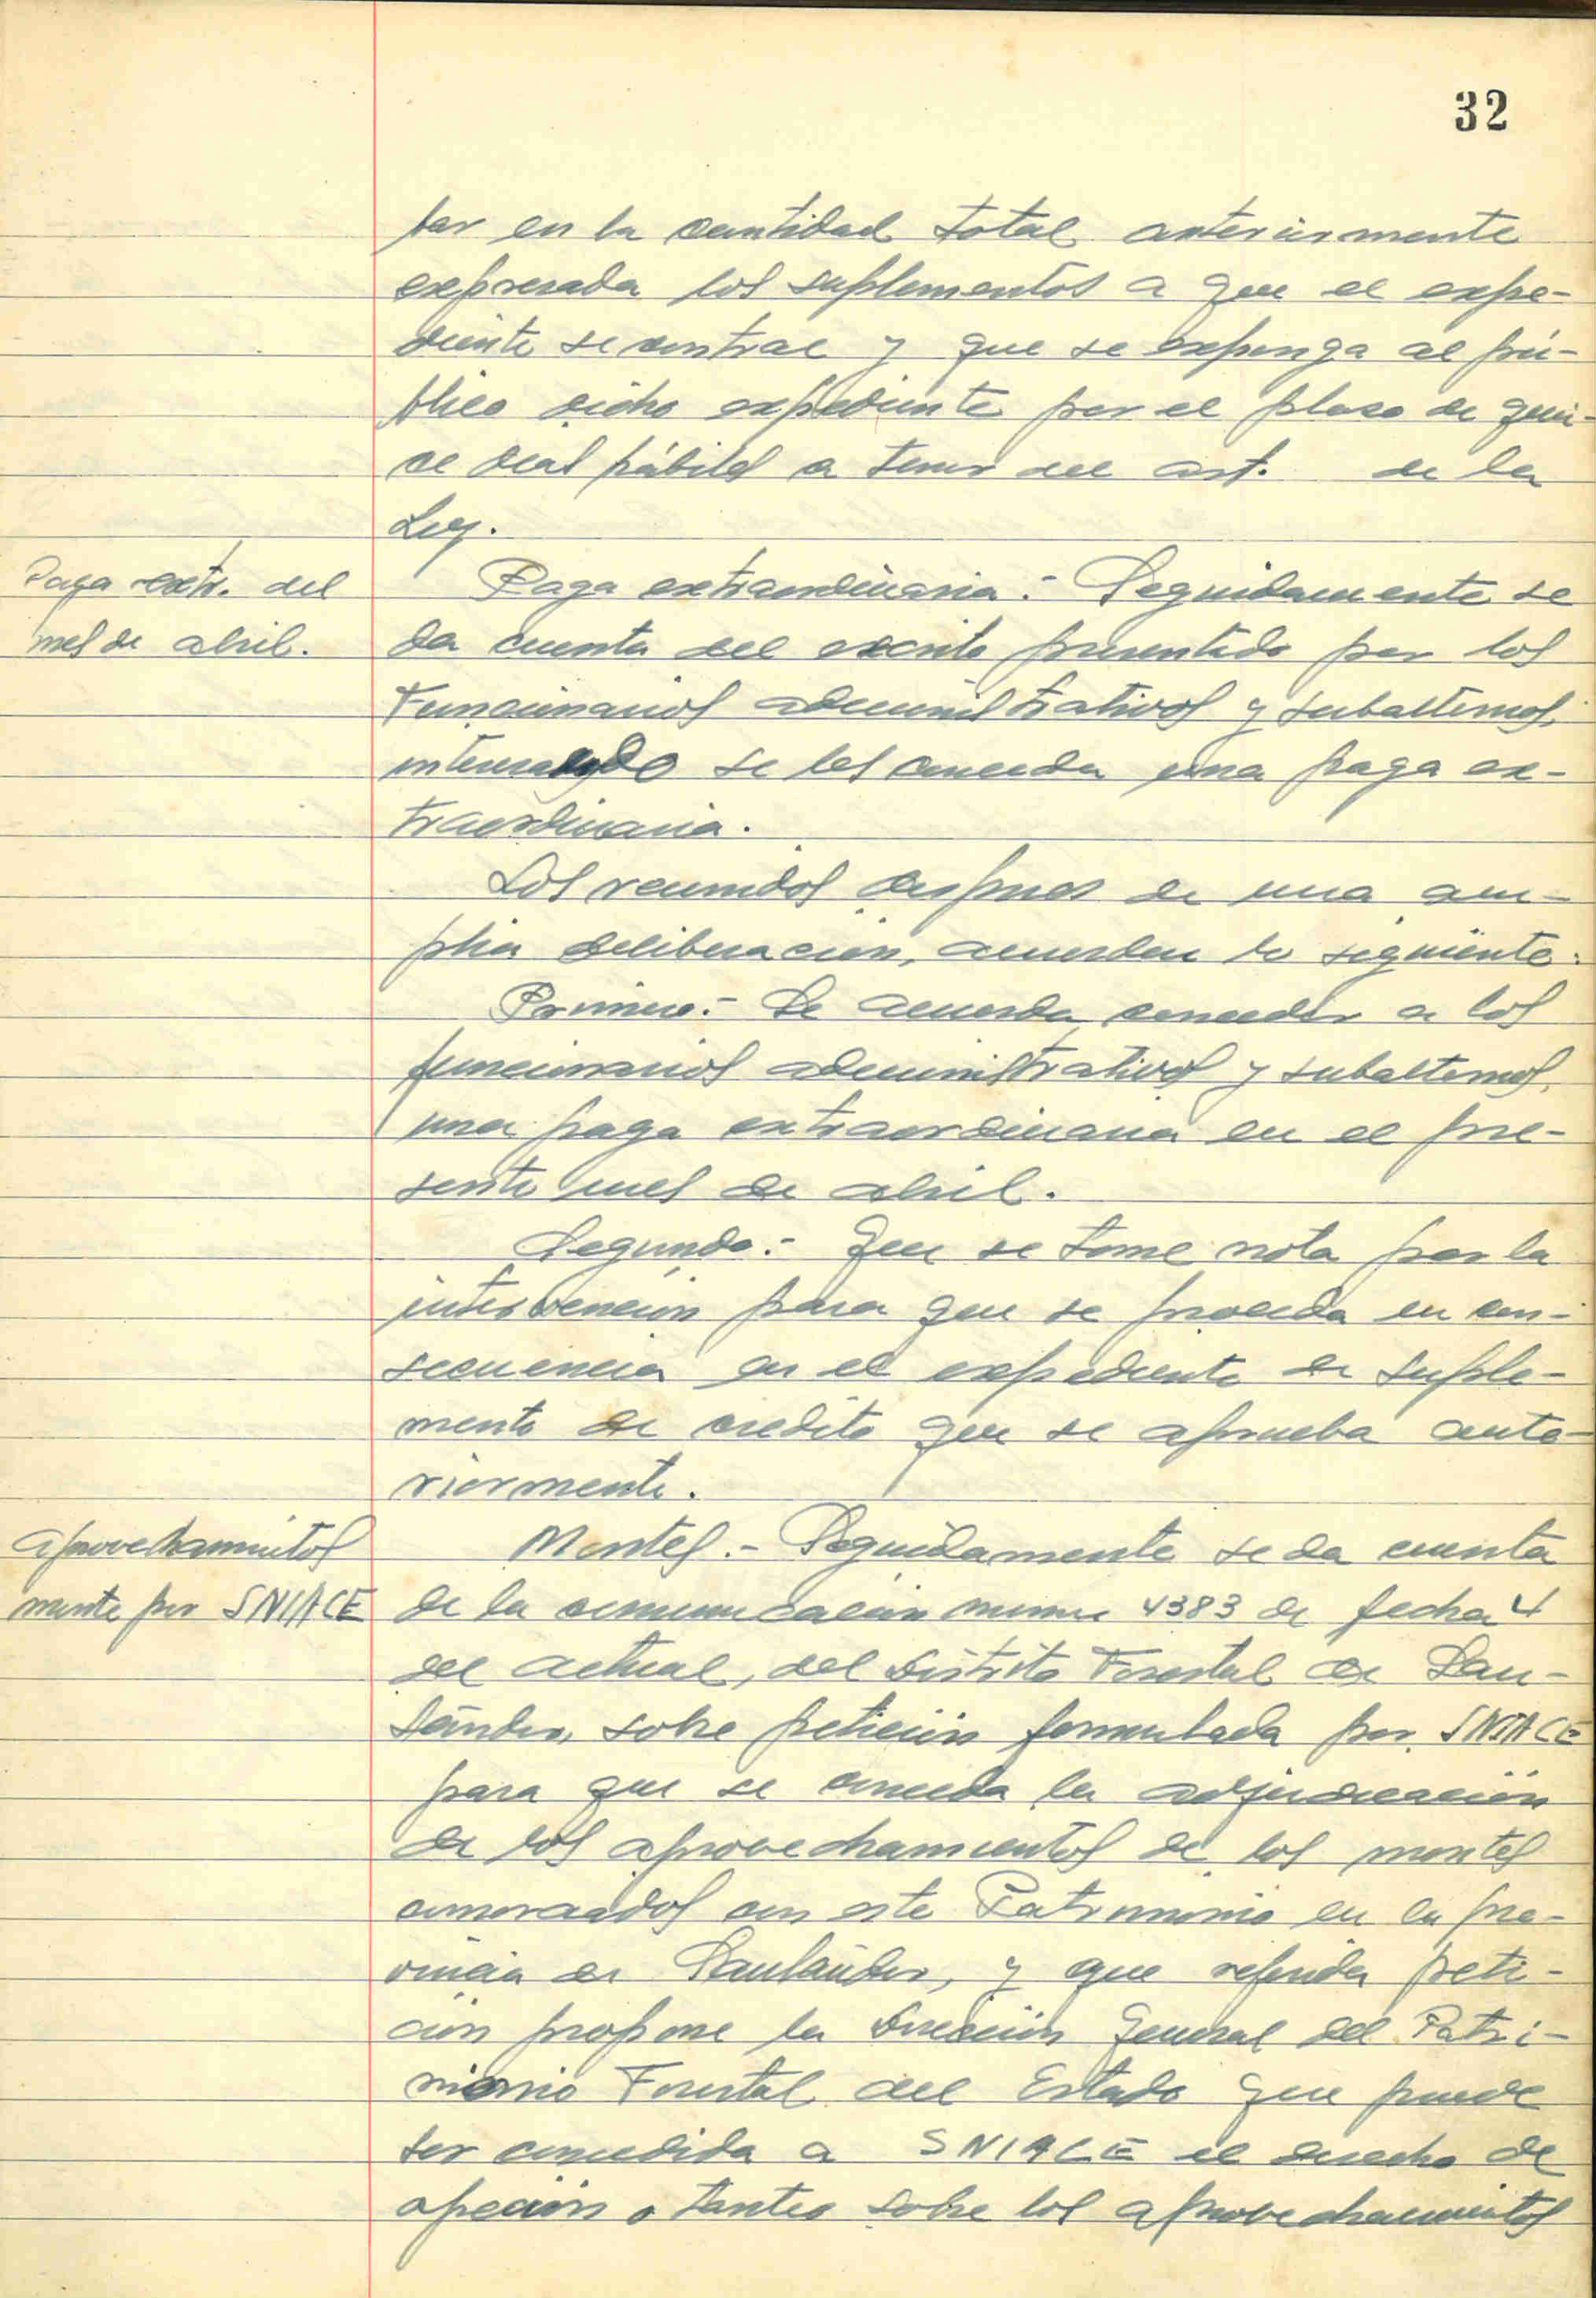 32
tar en la cantidad total anteriormente
expresada los suplementos a que el expe-
diente se contrae y que se exponga al pú-
blico dicho expediente por el plazo de quin-
ce dias hábiles a tenor del art. de la
Ley.
Paga extr. del
mes de abril.
Paga extraordinaria.- Seguidamente se
da cuenta del escrito presentado por los
Funcionarios administrativos y subalternos,
interesando se les conceda una paga ex-
traordinaria.
Los reunidos despues de una am-
plia deliberación, acuerdan lo siguiente:
Primero.- Se acuerda conceder a los
funcionarios administrativos y subalternos,
una paga extraordinaria en el pre-
sente mes de abril.
Segundo.- Que se tome nota por la
intervención para que se proceda en con-
secuencia en el expediente de suple-
mento de credito que se aprueba ante-
riormente.
Aprovechamientos
monte por SNIACE
Montes.- Seguidamente se da cuenta
de la comunicación numero 4383 de fecha 4
del actual, del Distrito Forestal de San-
tánder, sobre petición formulada por SNIACE
para que se conceda la adjudicación
de los aprovechamientos de los montes
consorciados con este Patrimonio en la pro-
vincia de Santánder, y que referida peti-
ción propone la Dirección General del Patri-
monio Forestal del Estado que puede
ser concedida a SNIACE el derecho de
opción o tanteo sobre los aprovechamientos